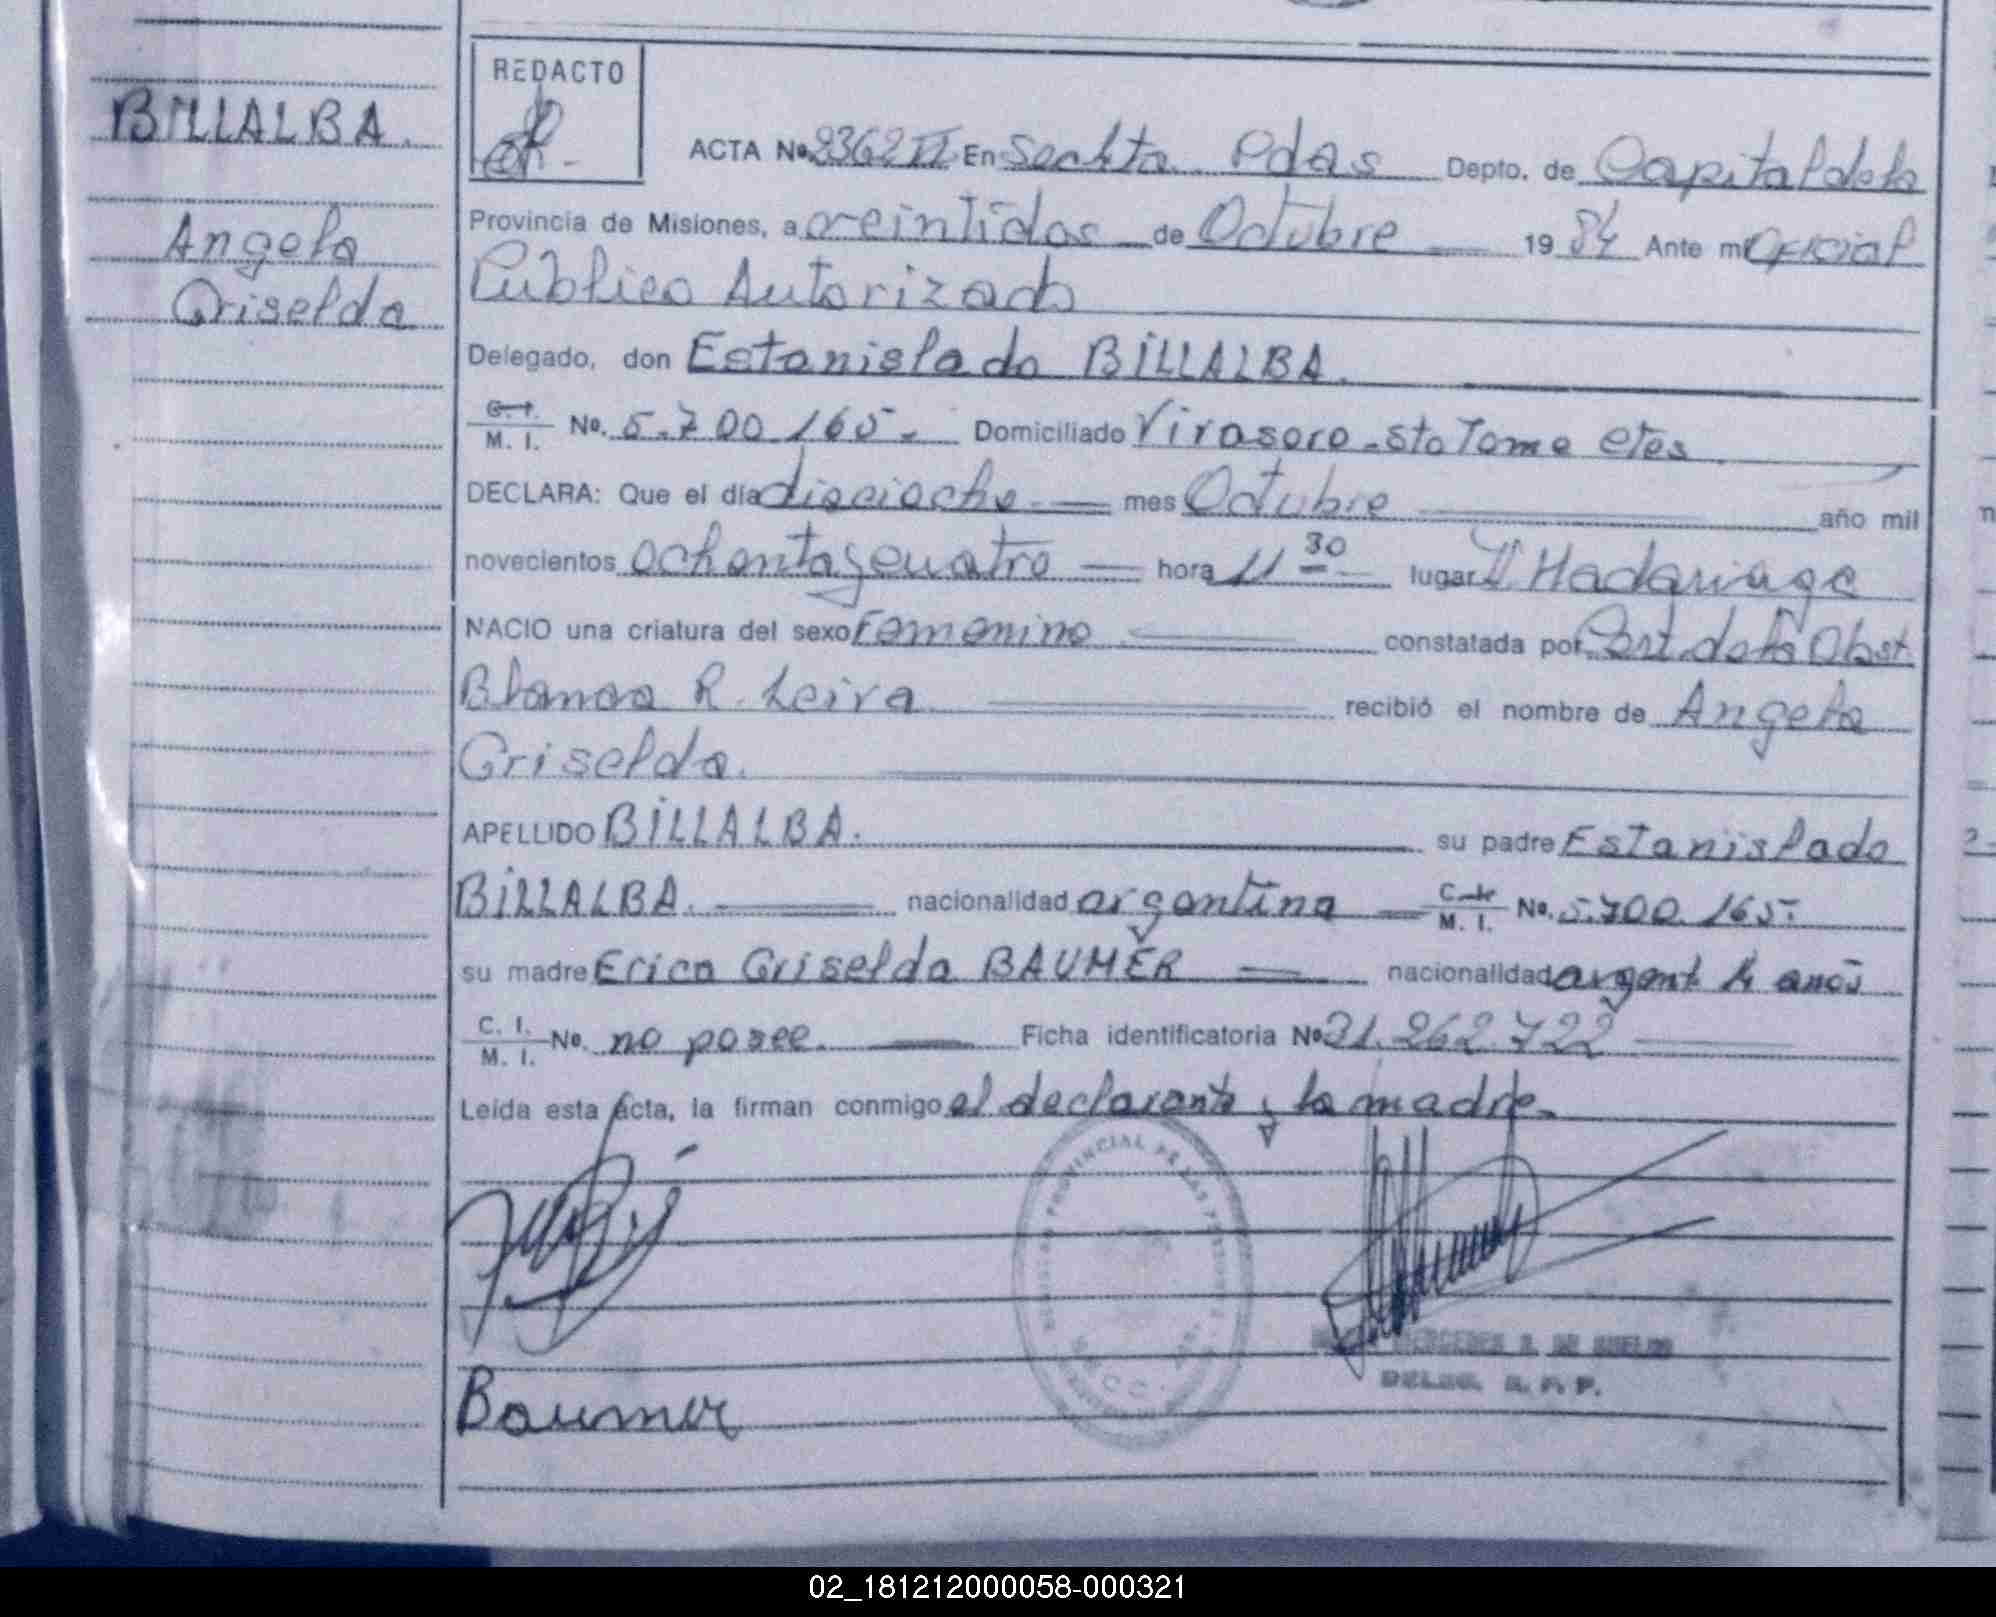 BILLALBA.
Angela
Griselda
REDACTO
ACTA No. 2362 II En Posadas Depto. de Capital de la
Provincia de Misiones, a veintidos de Octubre 19 84 Ante mi Oficial
Público Autorizado
Delegado, don Estanislado BILLALBA.
C. I. / M. I. No. 5.700.165.- Domiciliado Virasoro - Sto Tome Ctes
DECLARA: Que el día dieciocho mes Octubre año mil
novecientos ochenta y cuatro hora 11 30 lugar H Madariaga
NACIO una criatura del sexo femenino constatada por Cert. de la Obst.
Blanca R. Leiva recibió el nombre de Angela
Griselda.
APELLIDO BILLALBA. su padre Estanislado
BILLALBA. nacionalidad argentina C. I. / M. I. No. 5.700.165.-
su madre Erica Griselda BAUMER nacionalidad argent. años
C. I. / M. I. No. no posee. Ficha identificatoria No 31.262.722
Leída esta acta, la firman conmigo el declarante y la madre.
PROVINCIAL DE LAS PERSONAS
MERCEDES
DELEG. R. P. P.
Baumer
02_181212000058-000321